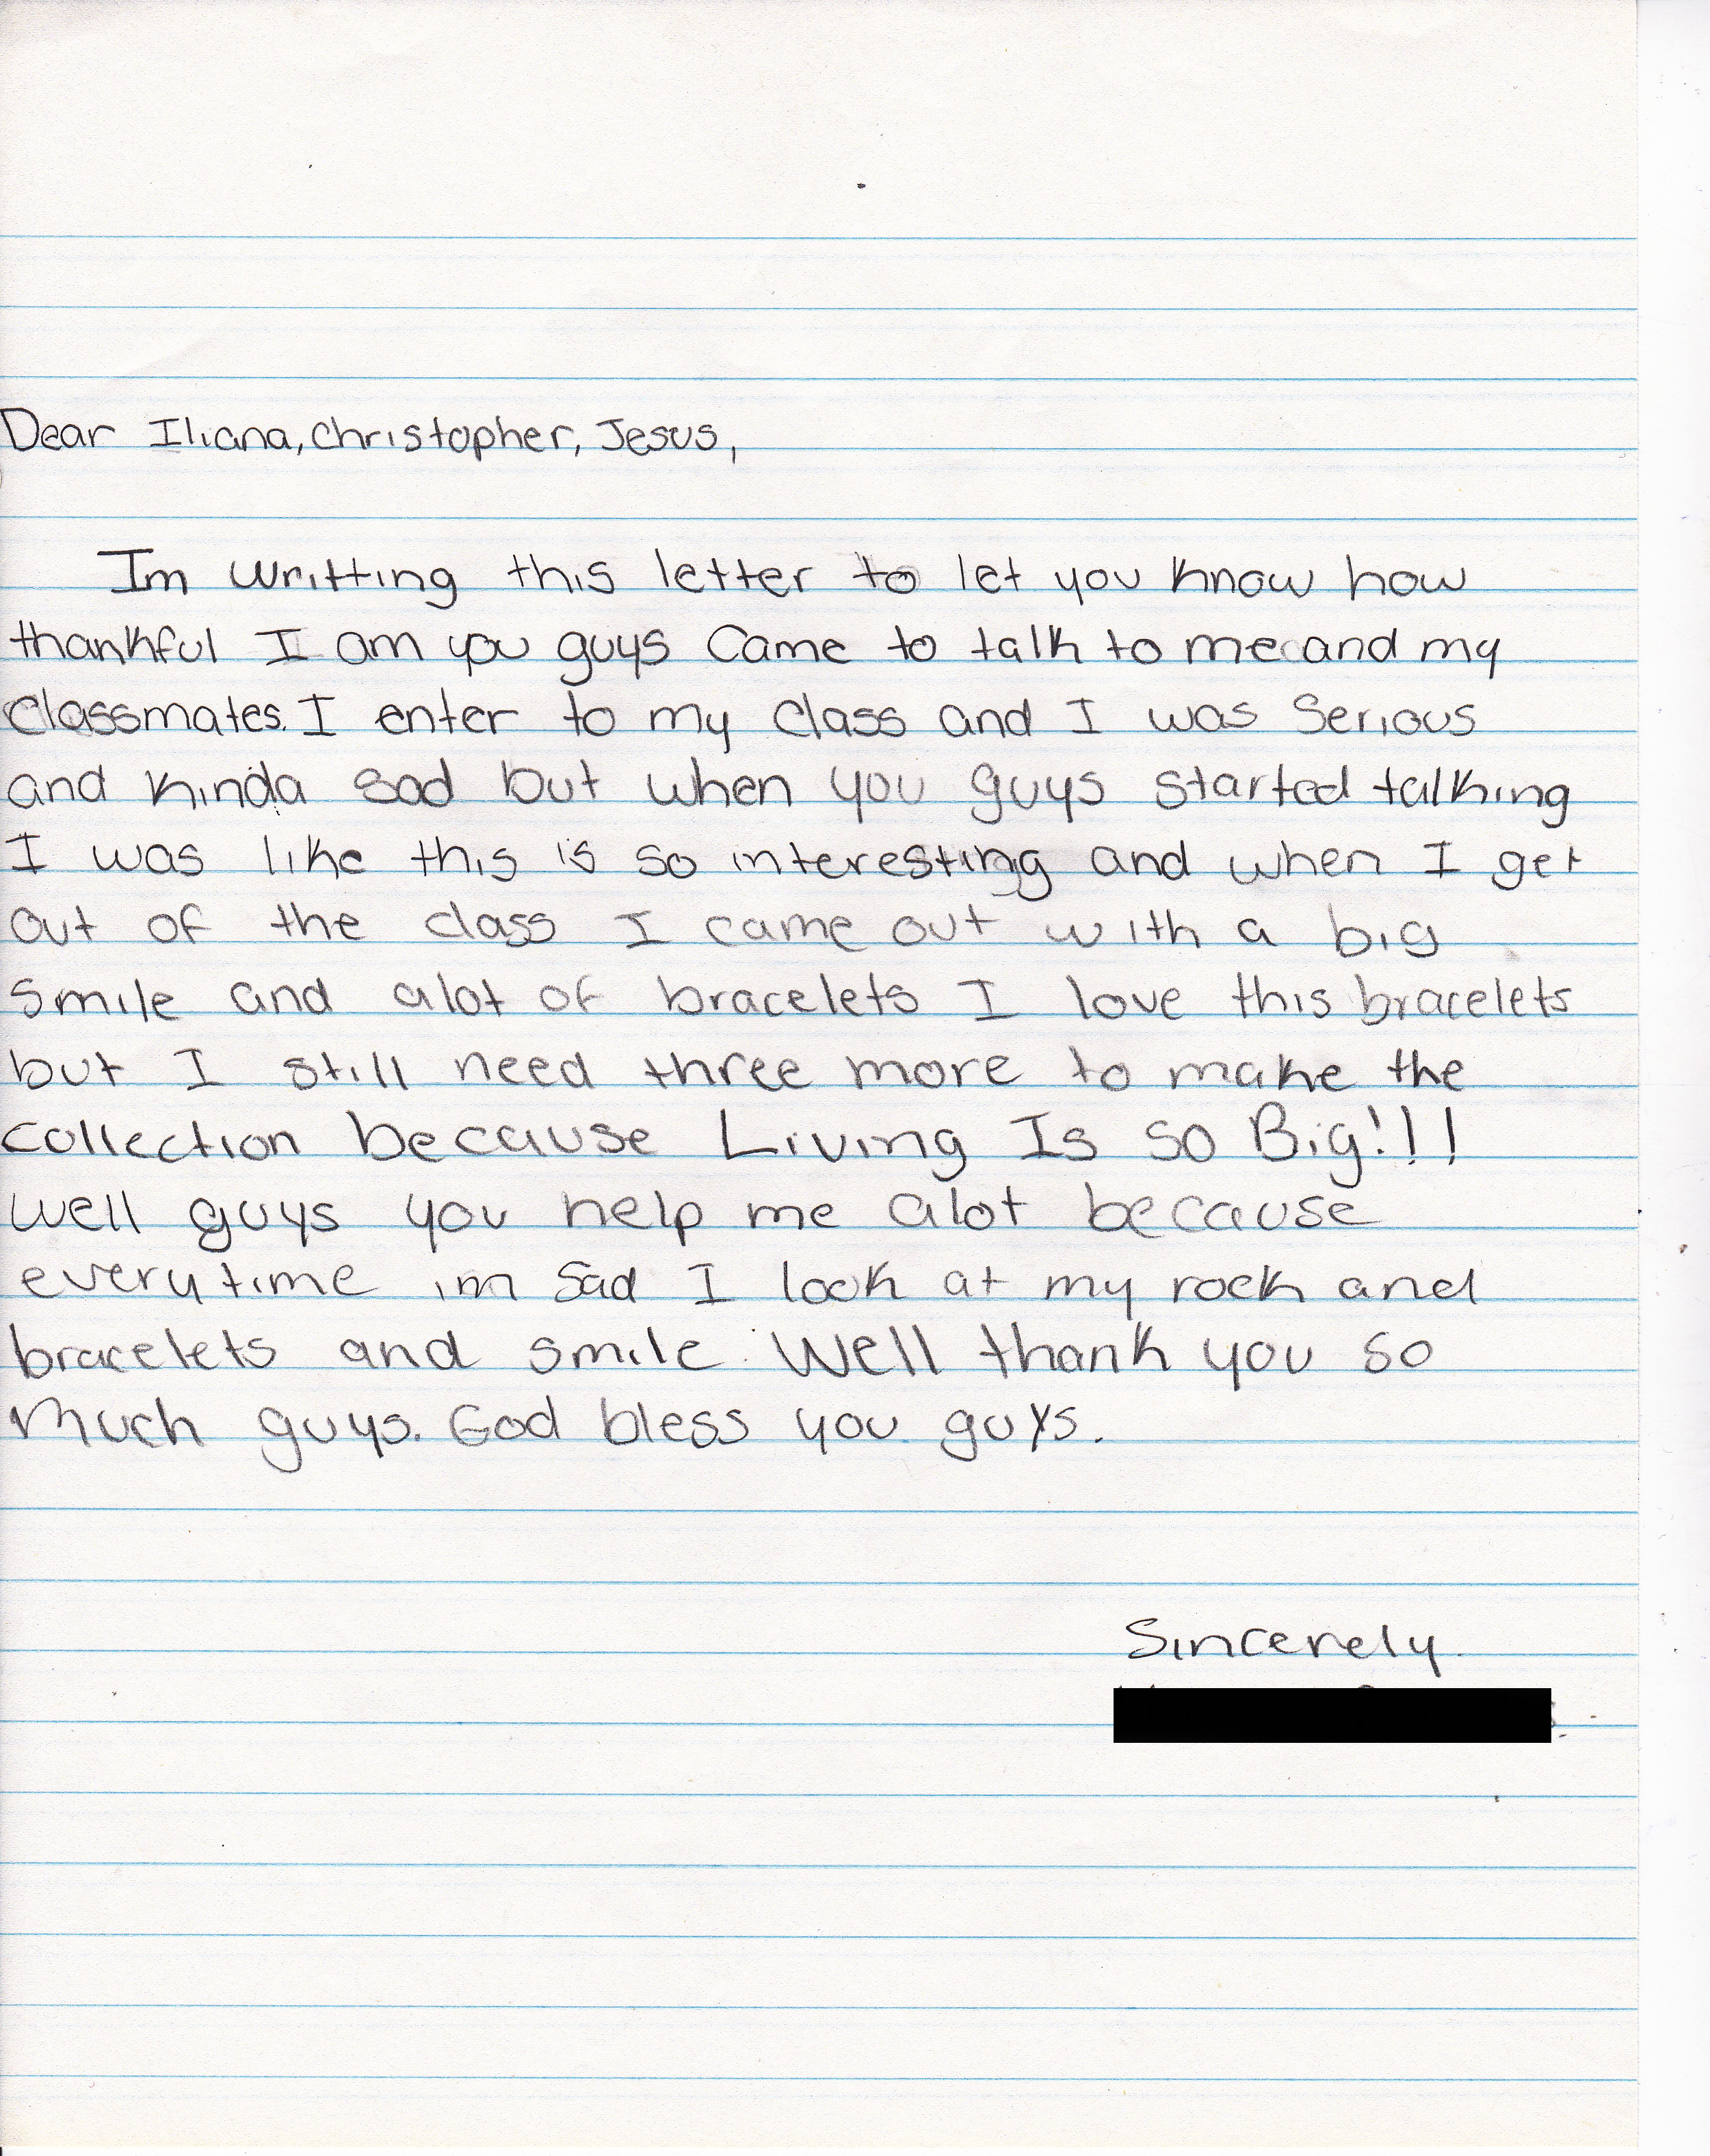 Dear Iliana, Christopher, Jesus,
Im writting this letter to let you know how
thankful I am you guys came to talk to me and my
classmates. I enter to my class and I was serious
and kinda sad but when you guys started talking
I was like this is so interesting and when I get
out of the class I came out with a big
smile and alot of bracelets I love this bracelets
but I still need three more to make the
collection because Living Is so Big!!!
Well guys you help me alot because
everytime im sad I look at my rock and
bracelets and smile. Well thank you so
much guys. God bless you guys.
Sincerely